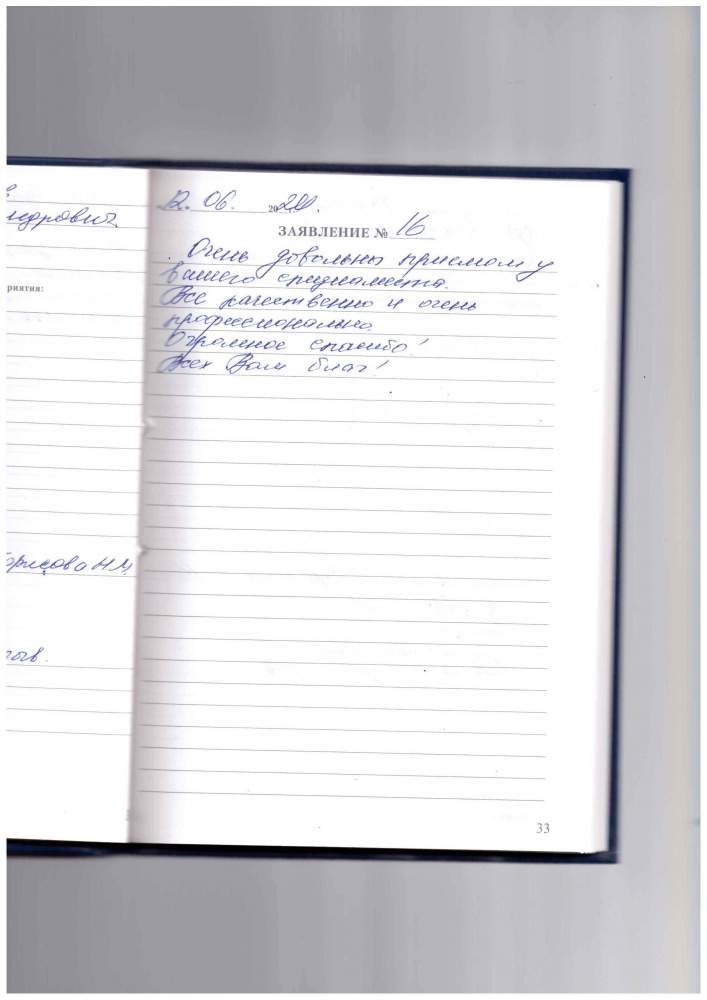 ндрович
риятия:
Борисова Н.М.
зыв.
12. 06. 20
ЗАЯВЛЕНИЕ № 16
Очень довольны приемом у
вашего специалиста.
Все качественно и очень
профессионально.
Огромное спасибо!
Всех Вам благ!
33